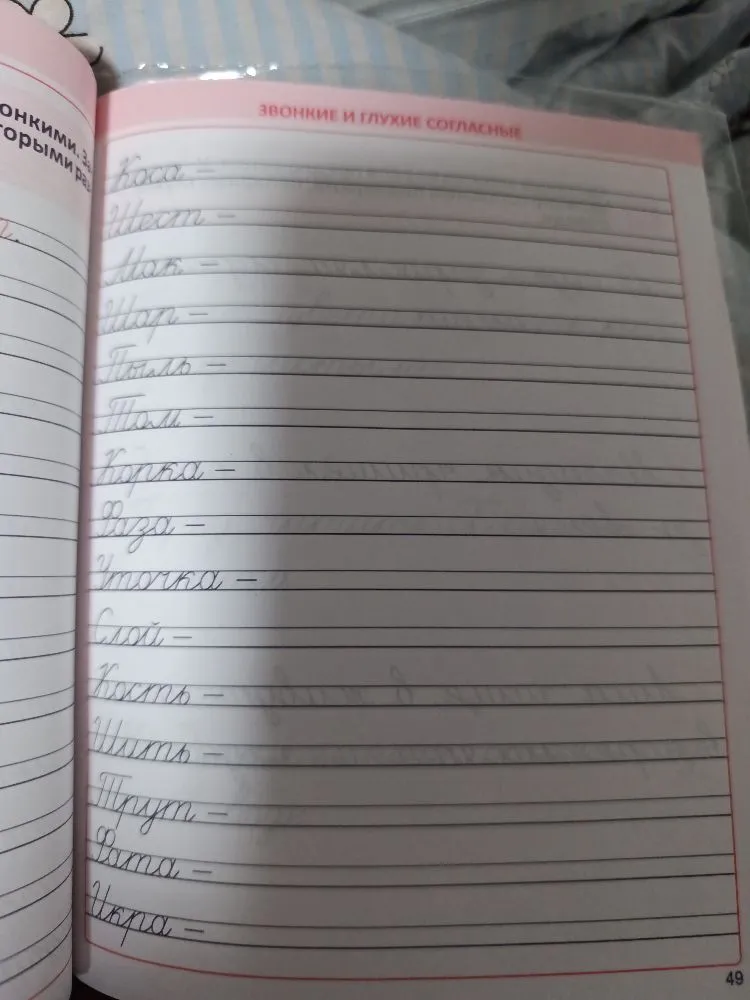 онкими. За
оторыми раз
г.
ЗВОНКИЕ И ГЛУХИЕ СОГЛАСНЫЕ
Коса –
Шест –
Мак –
Шар –
Пыль –
Том –
Корка –
Фаза –
Уточка –
Слой –
Кость –
Шить –
Трут –
Фата –
Икра –
49